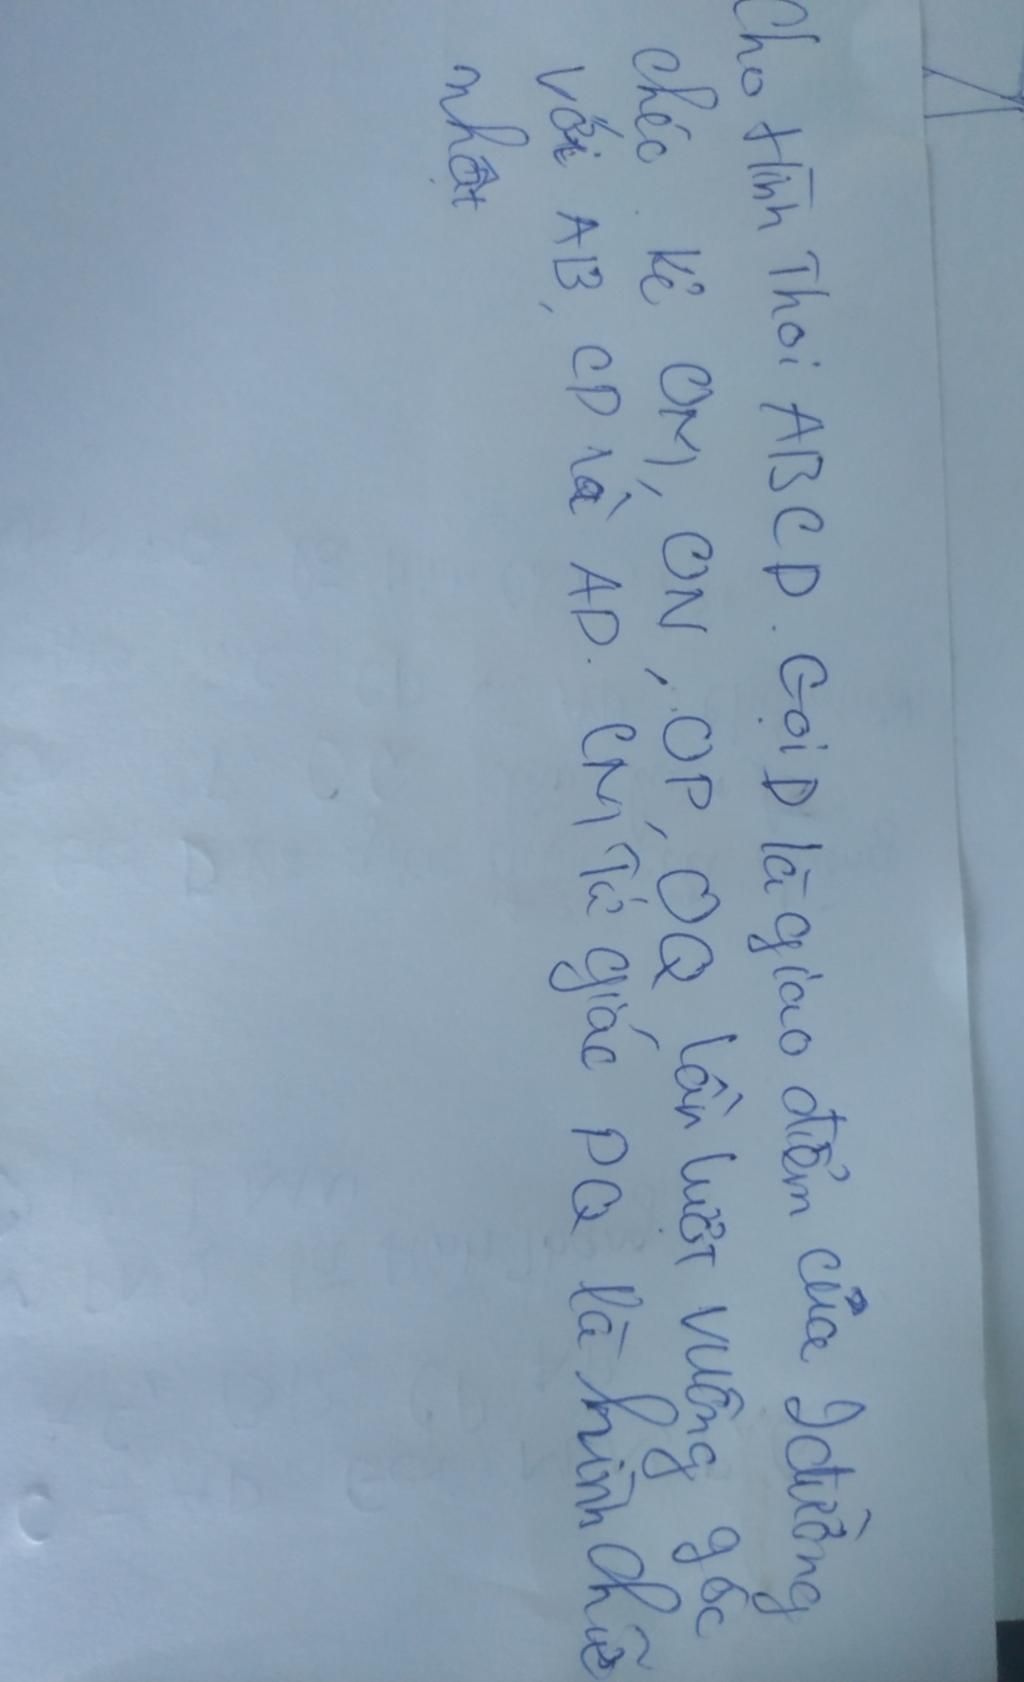 Cho Hình Thoi ABCD. Gọi D là giao điểm của 2 đường
chéo kẻ OM, ON, OP, OQ lần lượt vuông góc
với AB, CD và AD. CM Tứ giác PQ là hình chữ
nhật